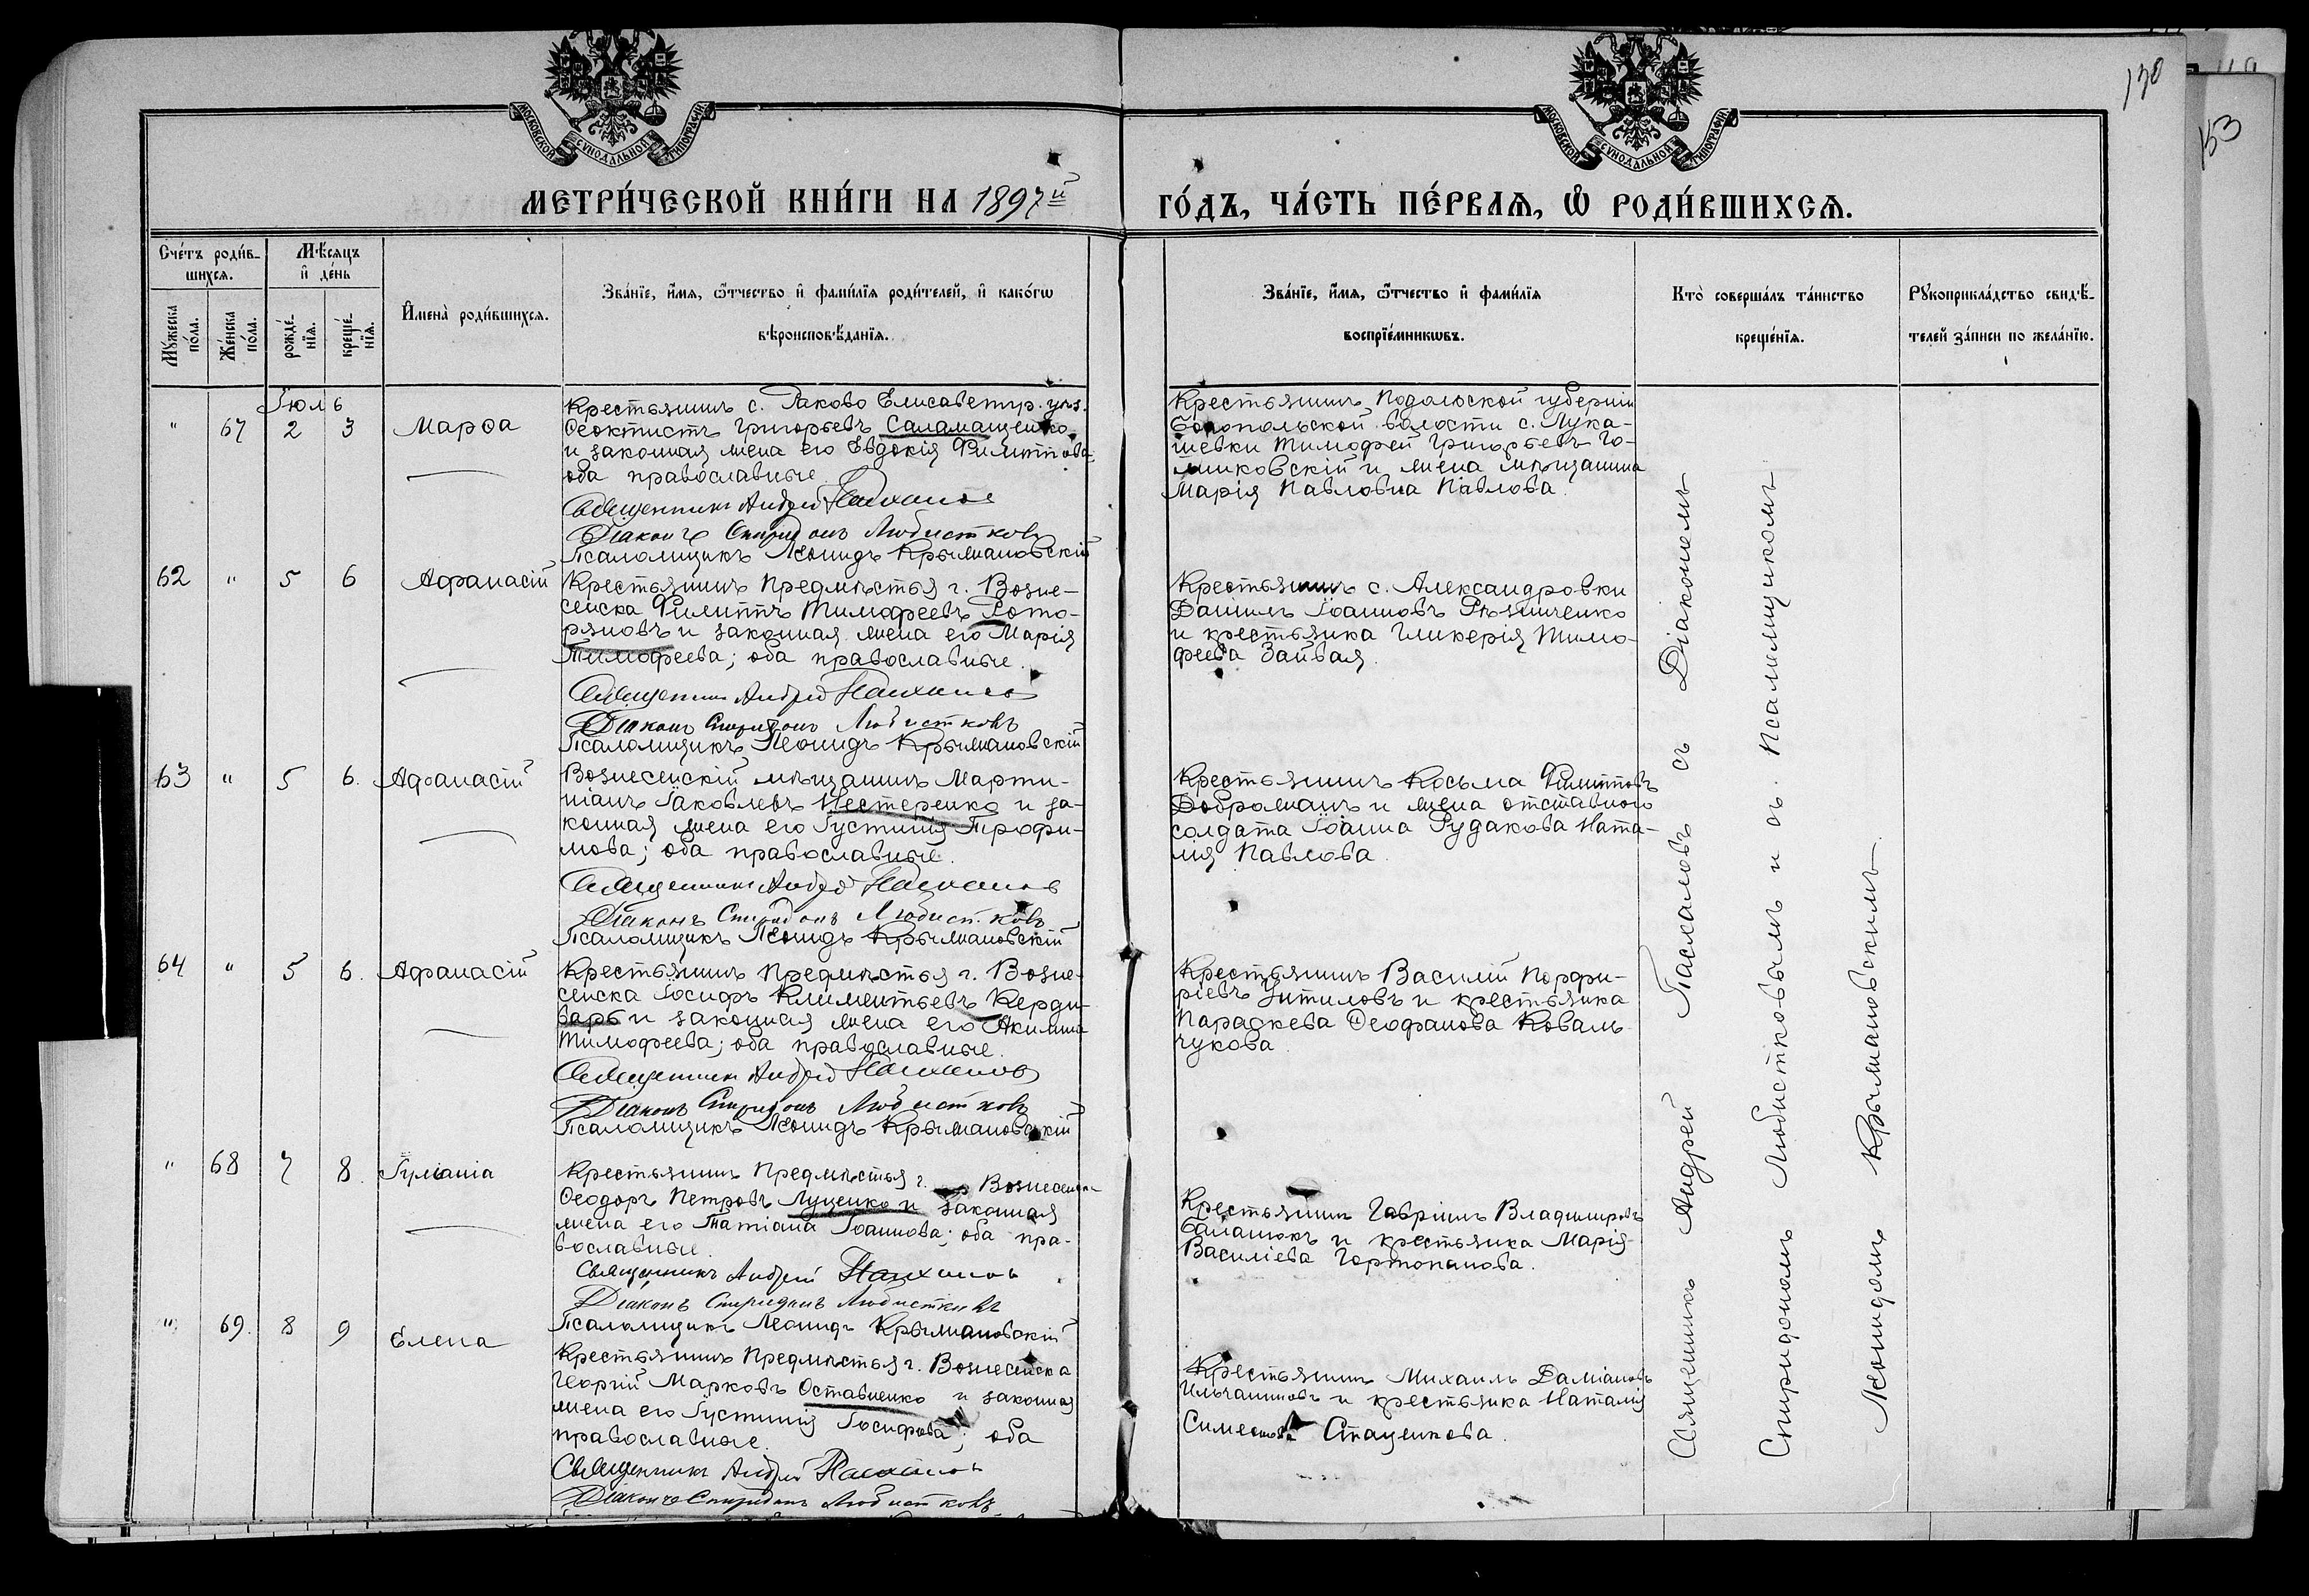 МОСКОВСКОЙ СѴНОДАЛЬНОЙ ТИПОГРАФІИ
МОСКОВСКОЙ СѴНОДАЛЬНОЙ ТИПОГРАФІИ
130
153
МЕТРИ́ЧЕСКОЙ КНИ́ГИ НА 1897й
ГО́ДЪ, ЧА́СТЬ ПЕ́РВАЯ, Ѡ РОДИ́ВШИХСЯ.
Сче́тъ роди́в-
шихся.
Мꙋ́жеска по́ла.
Же́нска по́ла.
Мѣ́сяцъ
и҆ де́нь
рожде́-
нїя.
креще́-
нїя.
И҆мена̀ роди́вшихся.
Зва́нїе, и҆́мя, ѻ҆́тчество и҆ фами́лїя роди́телей, и҆ како́гѡ
вѣроисповѣ́данїя.
Зва́нїе, и҆́мя, ѻ҆́тчество и҆ фами́лїя
воспрїе́мникѡвъ.
Кто̀ соверша́лъ та́инство
креще́нїя.
Рꙋкоприкла́дство свидѣ́-
телей за́писи по жела́нїю.
Іюль
" 67 2 3 Марѳа
Крестьянинъ с. Раково Елисаветгр. уѣз.
Ѳеоктистъ Григорьевъ Саламащенко
и законная жена его Евдокія Филиппова
оба православные.
Священникъ Андрей
Діаконъ Спиридонъ Любистковъ
Псаломщикъ Леонидъ Крыжановскій
Крестьянинъ Подольской губерніи
волости с. Лука-
шевки Тимофей Григорьевъ Го-
жиковскій и жена мѣщанина
Марія Павловна Павлова.
62 " 5 6 Афанасій
Крестьянинъ Предмѣстья г. Возне-
сенска Филиппъ Тимофеевъ Рото-
ряновъ и законная жена его Марія
Тимофеева; оба православные.
Священникъ Андрей
Діаконъ Спиридонъ Любистковъ
Псаломщикъ Леонидъ Крыжановскій
Крестьянинъ с. Александровки
Даніилъ Іоанновъ Рѣзниченко
и крестьянка Гликерія Тимо-
феева Зайвая.
63 " 5 6. Афанасій
Вознесенскій мѣщанинъ Марти-
ніанъ Іаковлевъ Нестеренко и за-
конная жена его Іустинія Трофи-
мова; оба православные.
Священникъ Андрей
Діаконъ Спиридонъ Любистковъ
Псаломщикъ Леонидъ Крыжановскій
Крестьянинъ Косьма Филипповъ
Доброжанъ и жена отставного
солдата Іоанна Рудакова Ната-
лія Павлова.
64 " 5 6. Афанасій
Крестьянинъ Предмѣстья г. Возне-
сенска Іосифъ Климентьевъ Керди-
варь и законная жена его Акилина
Тимофеева; оба православные.
Священникъ Андрей
Діаконъ Спиридонъ Любистковъ
Псаломщикъ Леонидъ Крыжановскій
Крестьянинъ Василій Порфи-
ріевъ и крестьянка
Параскева Ѳеофанова Коваль-
чукова
" 68 7 8. Іуліанія
Крестьянинъ Предмѣстья г. Вознесенска
Ѳеодоръ Петровъ Луценко и законная
жена его Татіана Іоаннова; оба пра-
вославные.
Священникъ Андрей
Діаконъ Спиридонъ Любистковъ
Псаломщикъ Леонидъ Крыжановскій
Крестьянинъ Гавріилъ Владиміровъ
Баланюкъ и крестьянка Марія
Василіева Гортопанова.
" 69. 8 9 Елена
Крестьянинъ Предмѣстья г. Вознесенска
Георгій Марковъ Оставненко и законная
жена его Іустинія Іосифова; оба
православные.
Священникъ Андрей
Діаконъ Спиридонъ Любистковъ
Крестьянинъ Михаилъ Даміановъ
и крестьянка Наталія
Симеонова Стаценкова.
Священникъ Андрей съ Діакономъ
Спиридономъ Любистковымъ и съ Псаломщикомъ
Леонидомъ Крыжановскимъ.